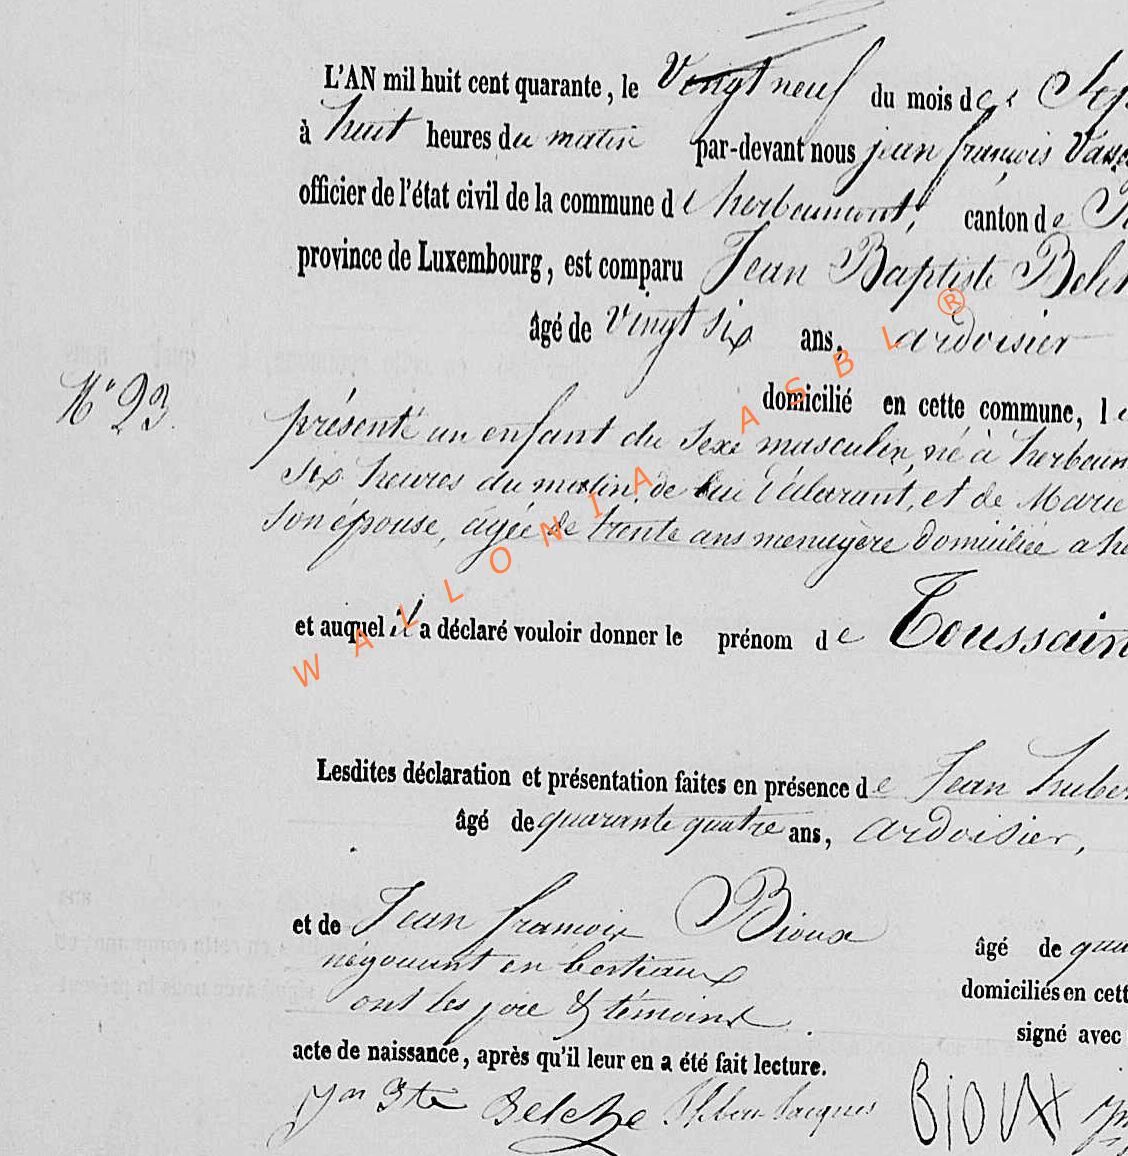 L'AN mil huit cent quarante, le Vingt neuf du mois de Sep
à huit heures du matin par-devant nous jean françois
officier de l'état civil de la commune d'herbeumont, canton de
province de Luxembourg, est comparu Jean Baptiste
âgé de Vingt six ans, ardoisier
domicilié en cette commune, l
N° 23.
présenté un enfant du Sexe masculin, né à herbeum
six heures du matin, de lui déclarant, et de Marie
son épouse, agée de trente ans menagère domiciliée a he
et auquel il a déclaré vouloir donner le prénom de Toussain
Lesdites déclaration et présentation faites en présence de Jean huber
âgé de quarante quatre ans, ardoisier,
et de Jean françois Bioux âgé de qua
négociant en bestiaux
domiciliés en cett
ont les témoins
signé avec
acte de naissance, après qu'il leur en a été fait lecture.
Jn Bte Delche Jacques BIOUX
WALLONIA ASBL ®